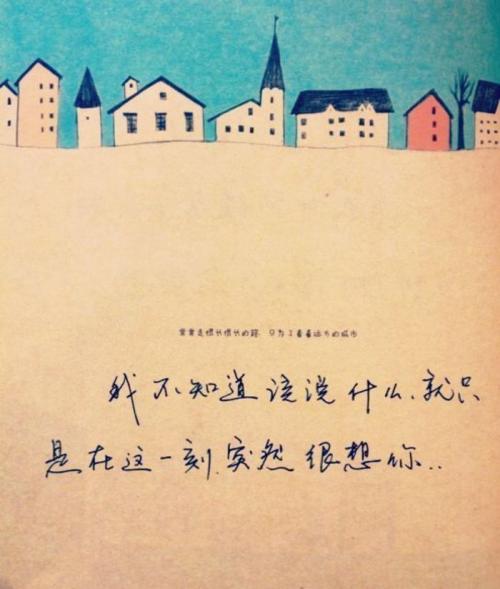 常常走很长很长的路，只为了看看远方的城市
我不知道该说什么、就只
是在这一刻,突然很想你..